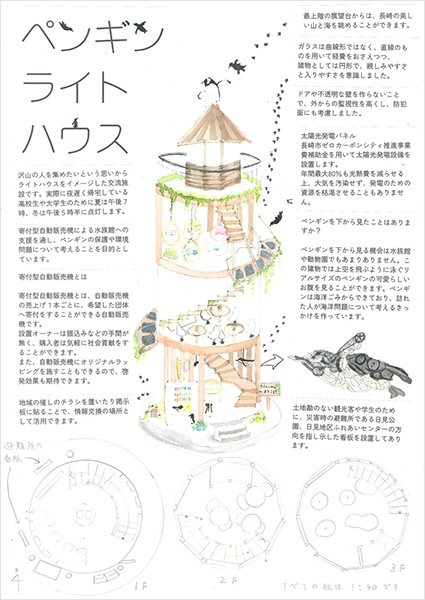 ペンギン
ライト
ハウス
沢山の人を集めたいという思いから
ライトハウスをイメージした交流施
設です。実際に夜遅く帰宅している
高校生や大学生のために夏は午後7
時、冬は午後5時半に点灯します。
寄付型自動販売機による水族館への
支援を通し、ペンギンの保護や環境
問題について考えることを目的とし
ています。
寄付型自動販売機とは
寄付型自動販売機とは、自動販売機
の売上げ1本ごとに、希望した団体
へ寄付をすることができる自動販売
機です。
設置オーナーは振込みなどの手間が
無く、購入者は気軽に社会貢献をす
ることができます。
また、自動販売機にオリジナルラッ
ピングを施すこともできるので、啓
発効果も期待できます。
地域の催しのチラシを置いたり掲示
板に貼ることで、情報交換の場所と
して活用できます。
最上階の展望台からは、長崎の美し
い山と海を眺めることができます。
ガラスは曲線形ではなく、直線のも
のを用いて経費をおさえつつ、
建物としては円形で、親しみやすさ
と入りやすさを意識しました。
ドアや不透明な壁を作らないこと
で、外からの監視性を高くし、防犯
面にも考慮しました。
太陽光発電パネル
長崎市ゼロカーボンシティ推進事業
費補助金を用いて太陽光発電設備を
設置します。
年間最大80%も光熱費を減らせる
上、大気を汚染せず、発電のための
資源を枯渇させることもありませ
ん。
ペンギンを下から見たことはありま
すか？
ペンギンを下から見る機会は水族館
や動物園でもあまりありません。こ
の建物では上空を飛ぶように泳ぐリ
アルサイズのペンギンの可愛らしい
お腹を見ることができます。ペンギ
ンは海洋ごみからできており、訪れ
た人が海洋問題について考えるきっ
かけを作っています。
土地勘のない観光客や学生のため
に、災害時の避難所である日見公
園、日見地区ふれあいセンターの方
向を指し示した看板を設置してあり
ます。
避難所の
看板
1F
2F
3F
すべての絵は 1:40 です